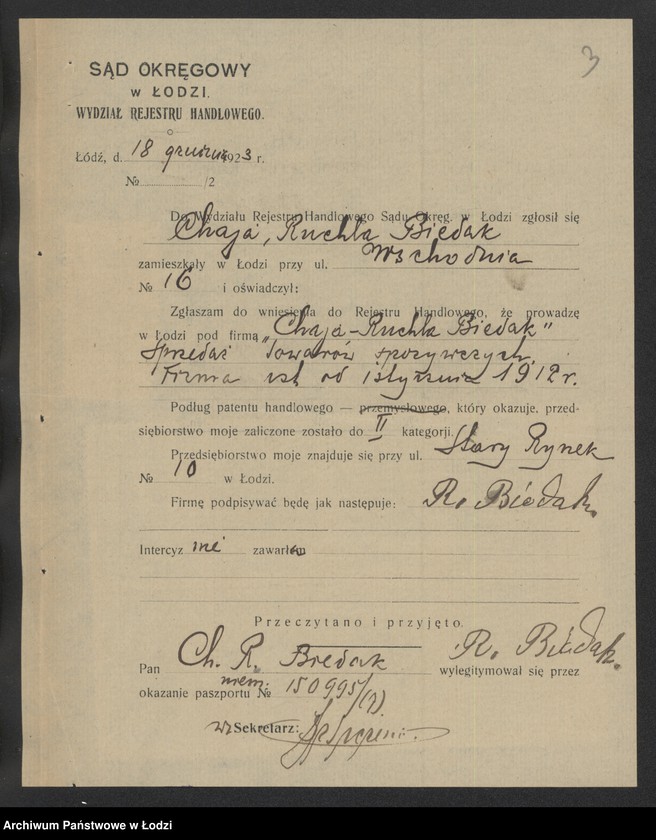 3
SĄD OKRĘGOWY
w ŁODZI.
WYDZIAŁ REJESTRU HANDLOWEGO.
Łódź, d. 18 grudnia 1923 r.
№ /2
Do Wydziału Rejestru Handlowego Sądu Okręg. w Łodzi zgłosił się
Chaja, Ruchla Biedak
zamieszkały w Łodzi przy ul. Wschodnia
№ 16 i oświadczył:
Zgłaszam do wniesienia do Rejestru Handlowego, że prowadzę
w Łodzi pod firmą „Chaja-Ruchla Biedak"
Sprzedaż towarów spożywczych.
Firma ist. od 1 stycznia 1912 r.
Podług patentu handlowego — przemysłowego, który okazuje, przed-
siębiorstwo moje zaliczone zostało do II kategorji.
Przedsiębiorstwo moje znajduje się przy ul. Stary Rynek
№ 10 w Łodzi.
Firmę podpisywać będę jak następuje: R. Biedak.
Intercyz nie zawarłam
Przeczytano i przyjęto.
R. Biedak.
Pan Ch. R. Biedak wylegitymował się przez
okazanie paszportu niem. № 150995/(7)
wz Sekretarz:
Archiwum Państwowe w Łodzi